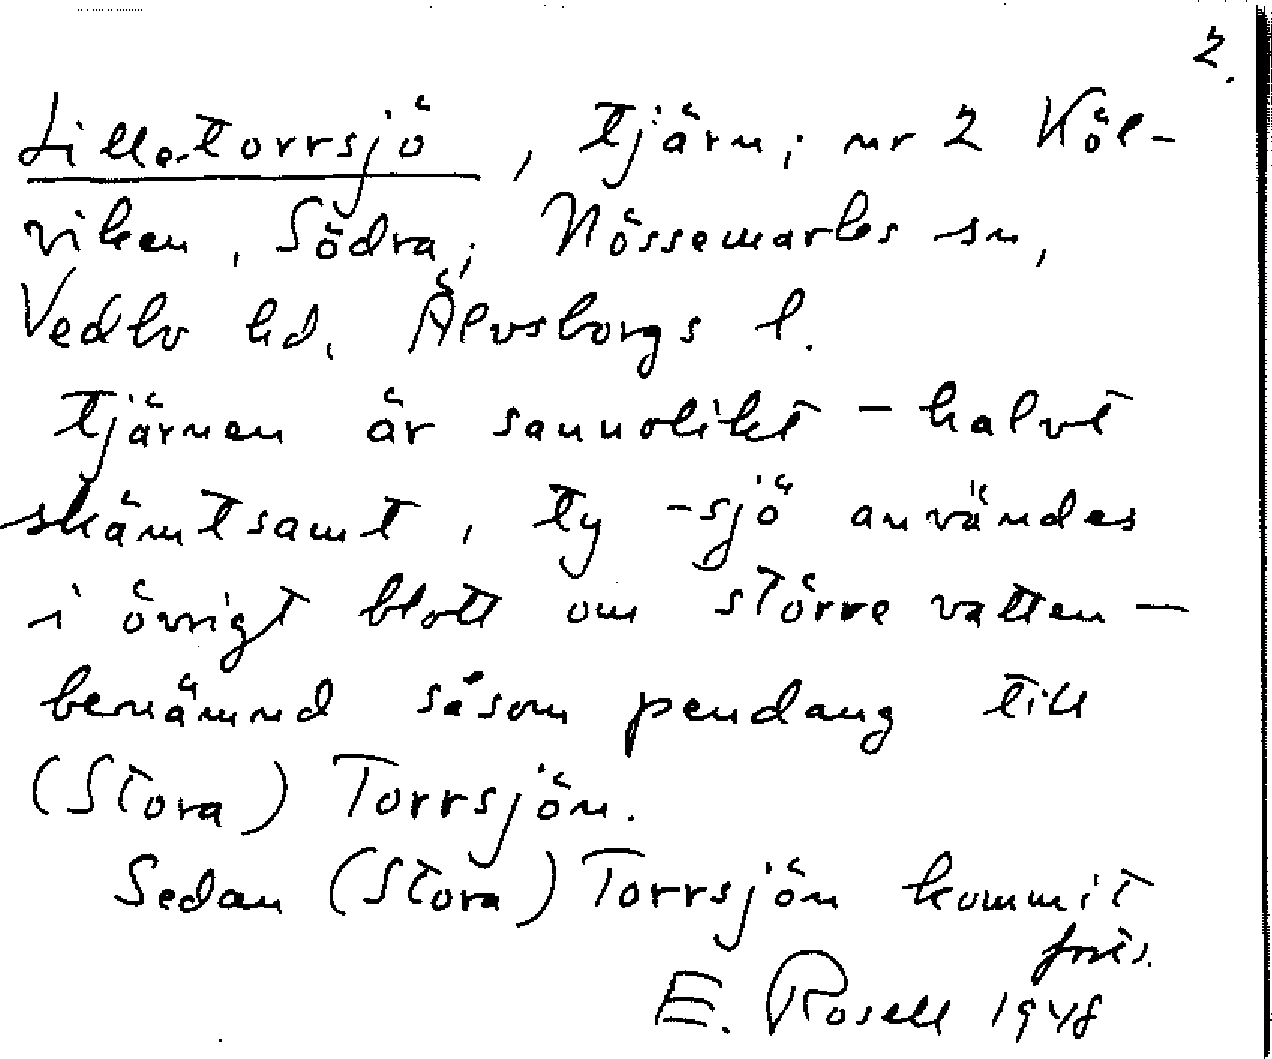 2.
Lilla Torrsjö, tjärn; nr 2 Köl-
viken, Södra; Nössemarks sn,
Vedbo hd. Älvsborgs l.
Tjärnen är sannolikt – halvt
skämtsamt, ty -sjö användes
i övrigt blott om större vatten –
benämnd såsom pendang till
(Stora) Torrsjön.
Sedan (Stora) Torrsjön kommit
forts.
E. Rosell 1948